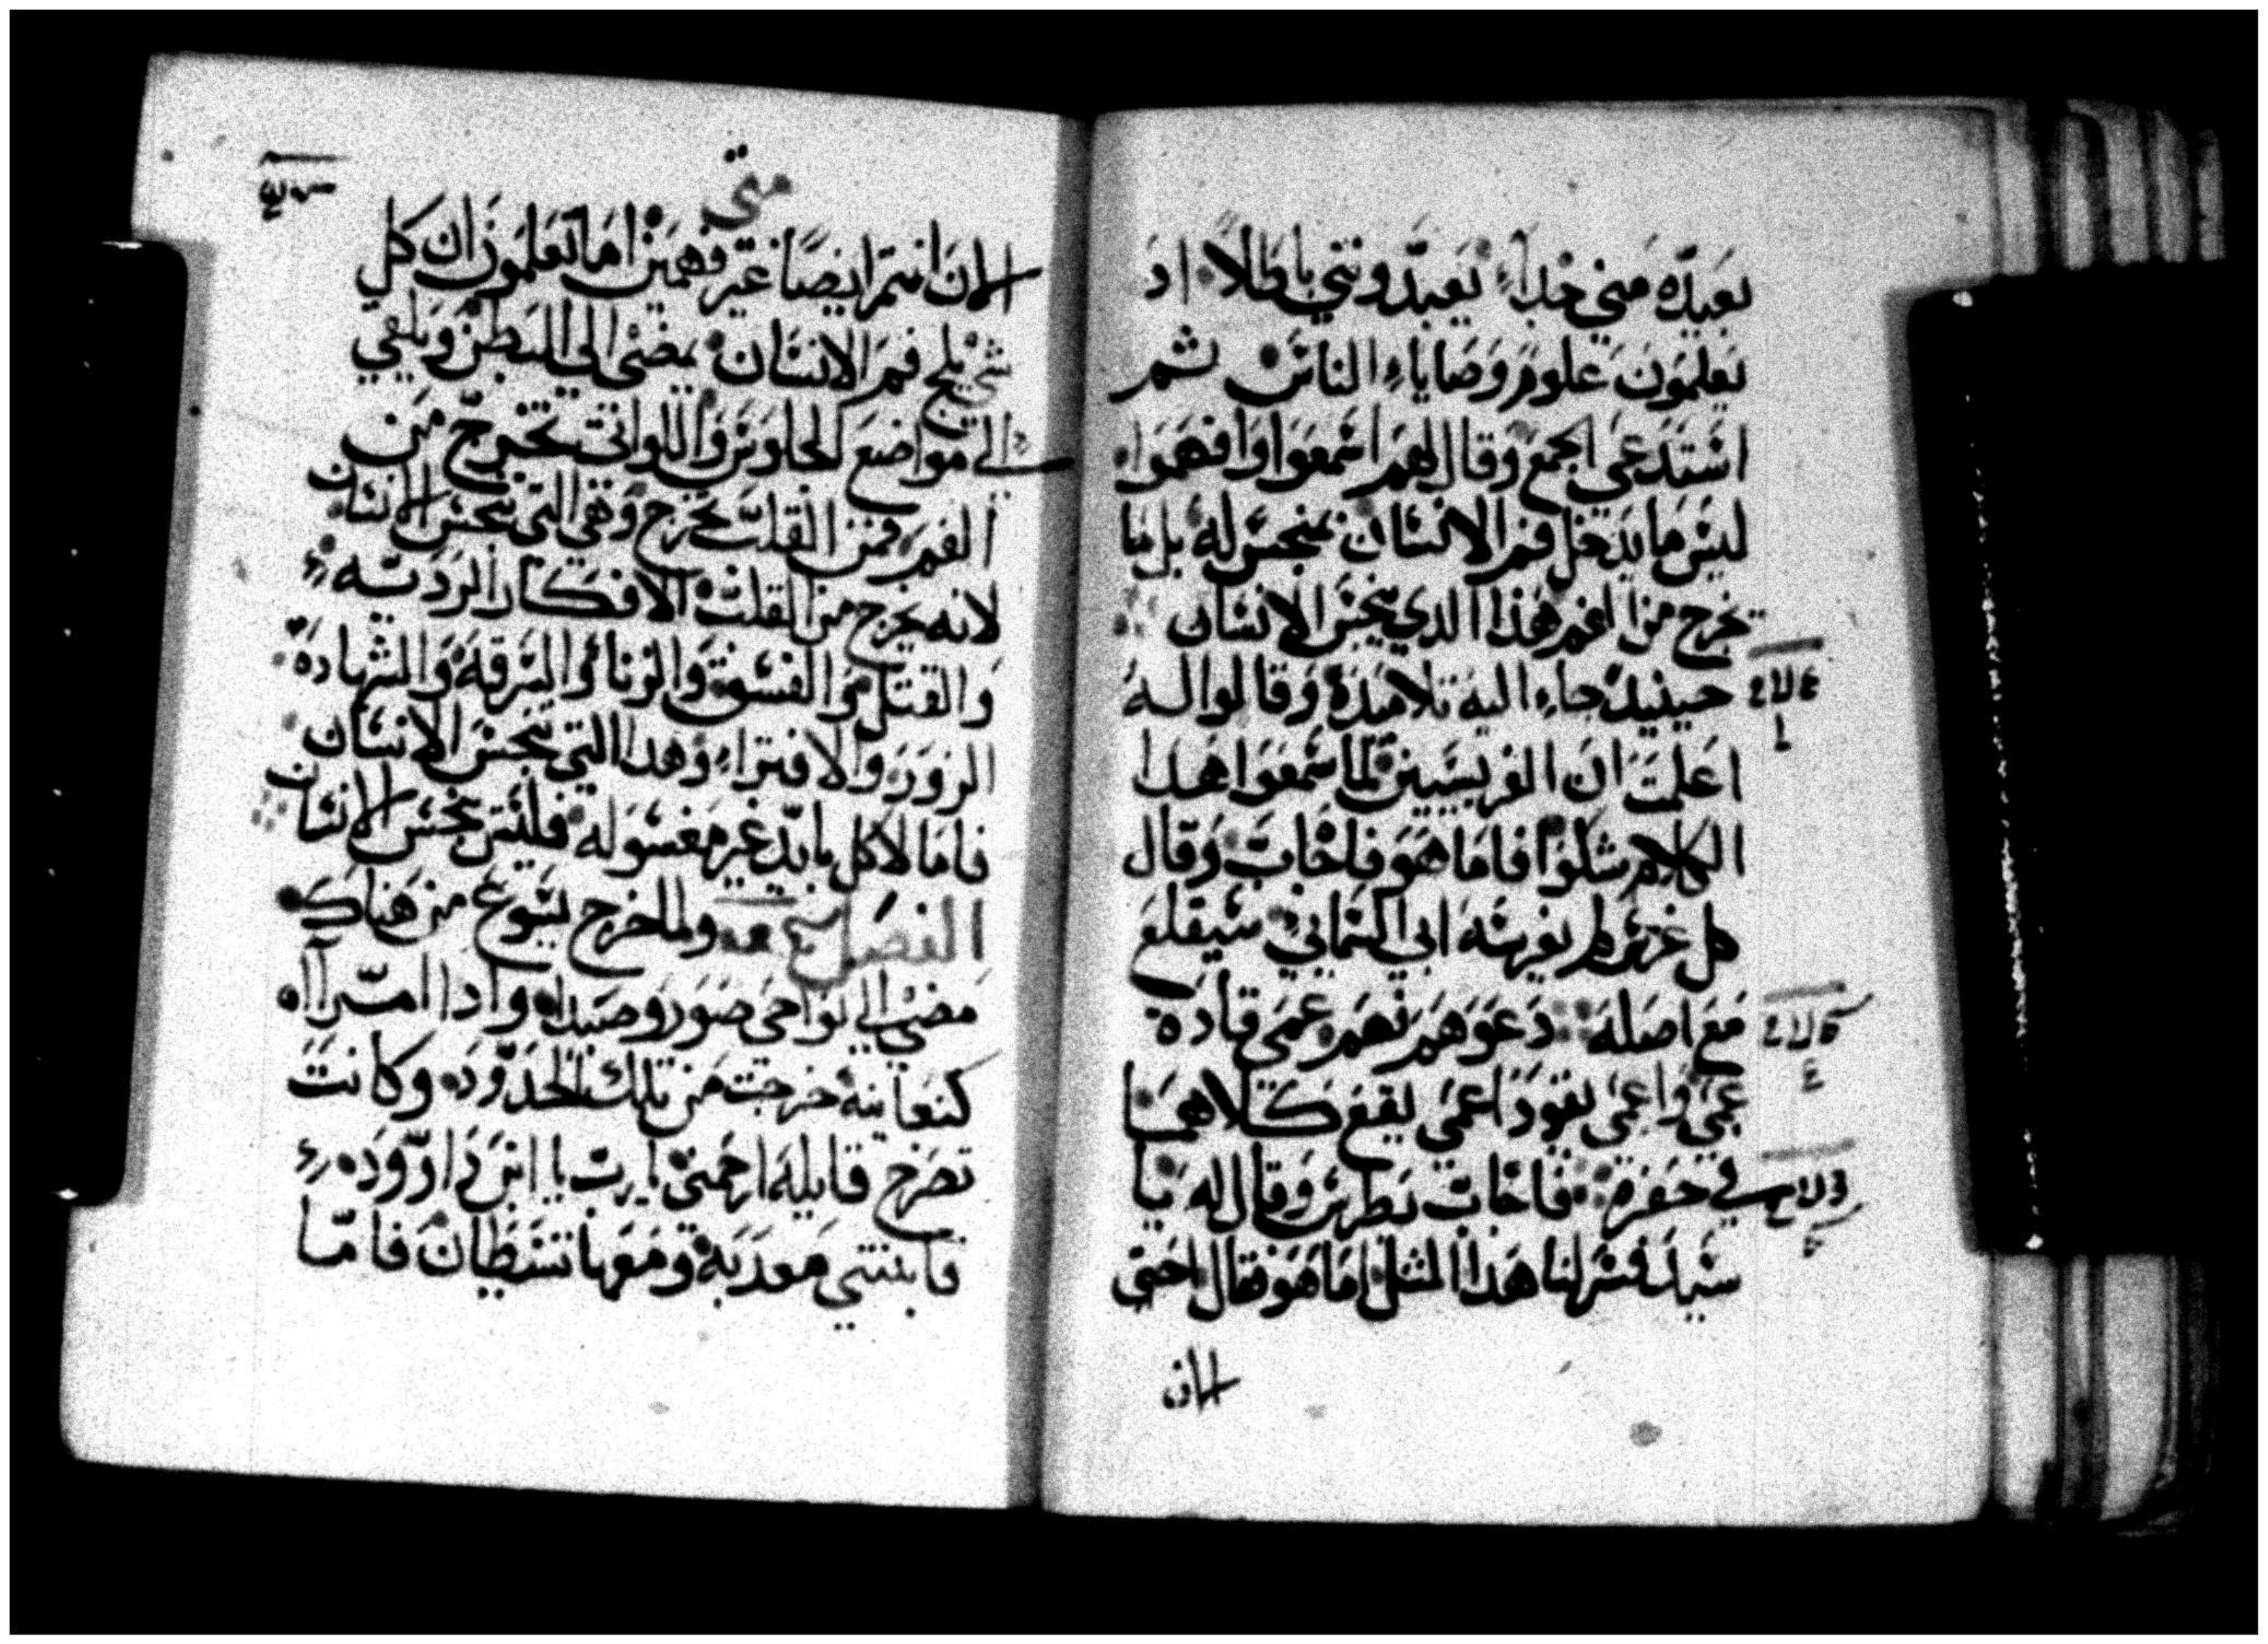 بعيده مني جداً يعبدونني باطلاً اد
يعلمون علوم وصاياء الناس ثم
استدعي الجمع وقال لهم اسمعوا وافهموا
ليس ما يدخل فم الانسان ينجس له بل ما
يخرج من الفم هذا الدي ينجس الانسان
حينيد جاء اليه تلاميده وقالوا له
اعلمت ان الفريسيين لما سمعوا هدا
الكلام شكوا فاما هو فاجاب وقال
كل غرس لم يغرسه ابي السماني سيقلع
مع اصله دعوهم فهم عمي قادة
عمي واعمي يقود اعمي يقع كلاهما
في حفره فاجاب بطرس وقال له يا
سيد فسر لنا هدا المثل اما هو فقال حتي
الان
متي
الان انتم ايضاً غير فهمين اما تعلمون ان كل
شي يلج فم الانسان يمضي الي البطن ويلقي
الي مواضع الجلوس واللواتي تخرج من
الفم فمن القلب تخرج وهي التي تنجس الانسان
لانه يخرج من القلب الافكار الرديه
والقتل والفسق والزنا والسرقة والشهادة
الزور والافتراء وهدا التي تنجس الانسان
فاما الاكل بايد غير مغسوله فليس ينجس الانسان
الفصل ولما خرج يسوع من هناك
مضي الي نواحي صور وصيدا وادا امراه
كنعانيه خرجت من تلك الحدود وكانت
تصرخ قايله ارحمني يا رب يا ابن داوود
فابنتي معدبة ومعها شيطان فاما